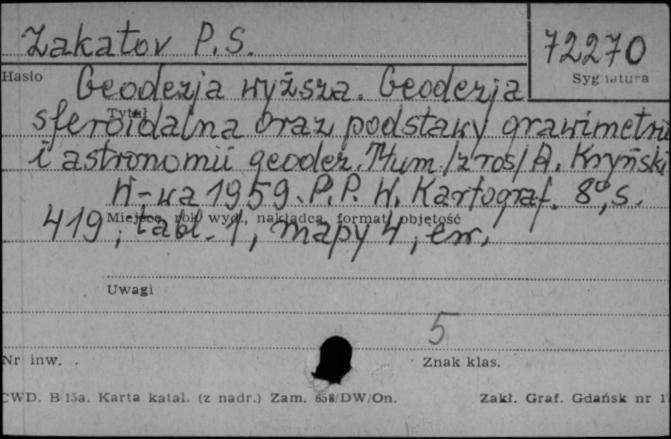 Zakatov P. S.
72270
Hasło
Sygnatura
Geodezja wyższa. Geodezja
Tytuł
sferoidalna oraz podstawy grawimetrii
i astronomii geodez. Tłum. /z ros/ A. Kryński
W-wa 1959. P.P. W. Kartograf. 8°, s.
Miejsce, rok wyd., nakładca, format, objętość
419, tabl. 1, mapy 4, err.
Uwagi
5
Nr inw.
Znak klas.
CWD. B 15a. Karta katal. (z nadr.) Zam. 658/DW/On.
Zakł. Graf. Gdańsk nr